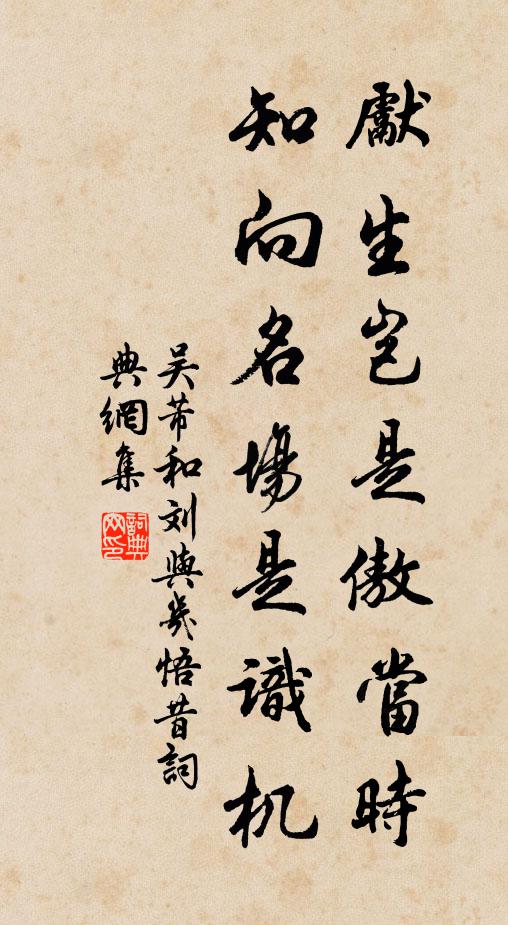 獻生岂是傲當時
知向名場是識机
吴芾和刘與幾悟昔詞
典網集
詞典网印